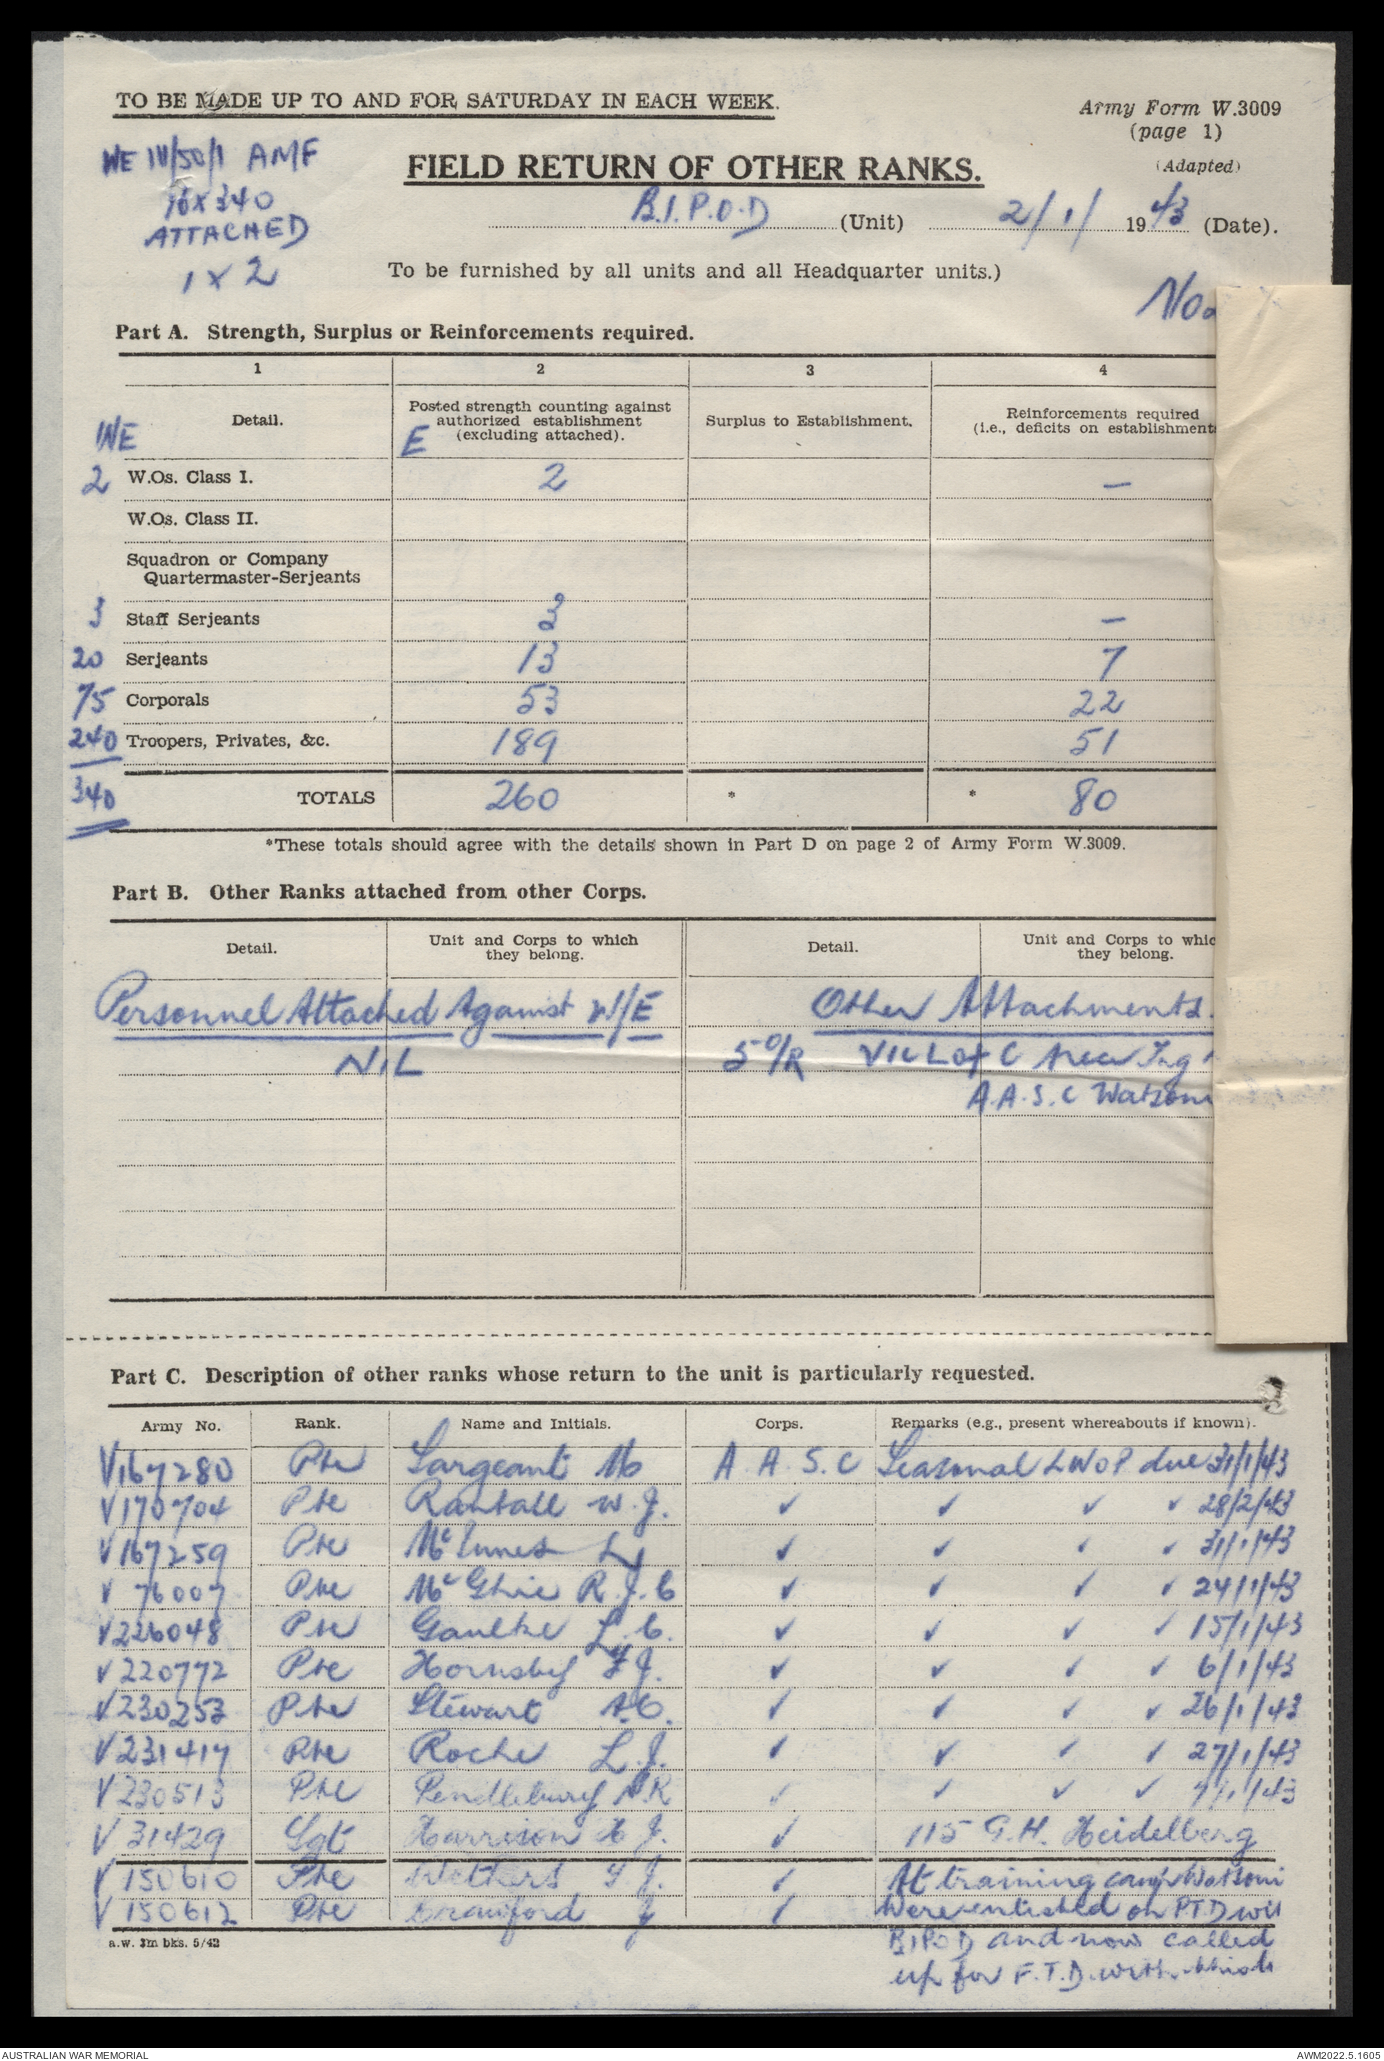 TO BE MADE UP TO AND FOR SATURDAY IN EACH WEEK.
Army Form W.3009
(page 1)
(Adapted)
WE IV/50/1 AMF
16 x 340
ATTACHED
1 x 2
FIELD RETURN OF OTHER RANKS.
B.I.P.O.D (Unit) 2/1/ 1943 (Date).
To be furnished by all units and all Headquarter units.)
No
Part A. Strength, Surplus or Reinforcements required.
1 2 3 4
Detail. Posted strength counting against authorized establishment (excluding attached). Surplus to Establishment. Reinforcements required (i.e., deficits on establishment
E
2 W.Os. Class I. 2 —
W.Os. Class II.
Squadron or Company
Quartermaster-Serjeants
3 Staff Serjeants 3 —
20 Serjeants 13 7
75 Corporals 53 22
240 Troopers, Privates, &c. 189 51
340 TOTALS 260 * * 80
*These totals should agree with the details shown in Part D on page 2 of Army Form W.3009.
Part B. Other Ranks attached from other Corps.
Detail. Unit and Corps to which they belong. Detail. Unit and Corps to they belong.
Personnel Attached Against W/E Other Attachments.
NIL 5 O/R Vic L of C Area Trg
A.A.S.C Watson
Part C. Description of other ranks whose return to the unit is particularly requested.
Army No. Rank. Name and Initials. Corps. Remarks (e.g., present whereabouts if known).
V167280 Pte Sargeant M A.A.S.C Seasonal LWOP due 31/1/43
V170704 Pte Rantall W.J. ✓ ✓ ✓ ✓ 28/2/43
V167259 Pte McInnes L ✓ ✓ ✓ ✓ 31/1/43
V 76007 Pte McGhie R.J.C ✓ ✓ ✓ ✓ 24/1/43
V226048 Pte Gaulke L.C. ✓ ✓ ✓ ✓ 15/1/43
V220772 Pte Hornsby F.J. ✓ ✓ ✓ ✓ 6/1/43
V230253 Pte Stewart A.C. ✓ ✓ ✓ ✓ 26/1/43
V231417 Pte Roche L.J. ✓ ✓ ✓ ✓ 27/1/43
V230513 Pte Pendlebury A.R ✓ ✓ ✓ ✓ /1/43
V 31429 Sgt Harrison H J. ✓ 115 G.H. Heidelberg
V 150610 Pte J. ✓ At training camp Watsoni
V 150612 Pte Crawford J ✓ Were enlisted on P.T.D wit
a.w. 3m bks. 5/42
BIPOD and now called
up for F.T.D. with
AUSTRALIAN WAR MEMORIAL
AWM2022.5.1605